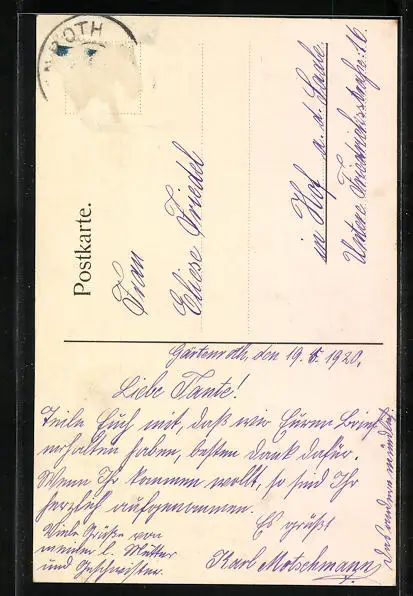 ROTH
Postkarte.
Frau
Eliese Friedel
in Hof a. d. Saale
Untere Friedrichsstraße 16.
Gärtenroth, den 19. 5. 1920.
Liebe Tante!
Teile Euch mit, daß wir Euren Brief
erhalten haben, besten Dank dafür.
Wenn Ihr kommen wollt, so seid Ihr
herzlich aufgenommen.
Es grüßt
Karl Motschmann
Viele Grüße von
meiner l. Mutter
und Geschwister.
Das andere mündlich